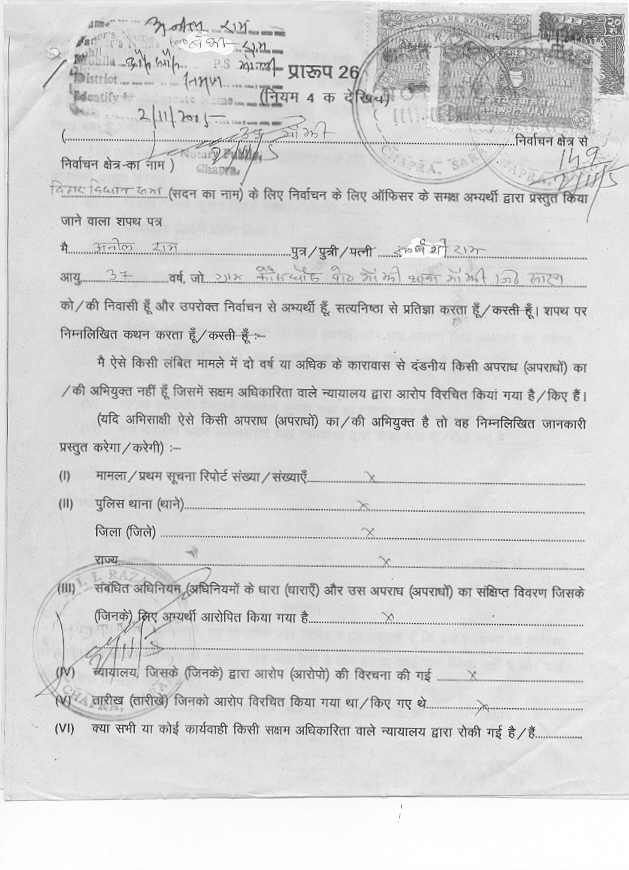 अनील राम
राम
P.S
District
Identify
2/11/2005
प्रारूप 26
(नियम 4 क देखिये)
NOTARY
CHAPRA, SARAN
Notary Public
Chapra
149
2/11/5
(................ मॉझी ................निर्वाचन क्षेत्र से
निर्वाचन क्षेत्र-का नाम )
2/11/5
बिहार विधान सभा (सदन का नाम) के लिए निर्वाचन के लिए ऑफिसर के समक्ष अभ्यर्थी द्वारा प्रस्तुत किया
जाने वाला शपथ पत्र
मै अनील राम पुत्र/पुत्री/पत्नी राम
आयु 37 वर्ष, जो ग्राम मॉझी थाना मॉझी जि० सारण
को/की निवासी हूँ और उपरोक्त निर्वाचन से अभ्यर्थी हूँ, सत्यनिष्ठा से प्रतिज्ञा करता हूँ/करती हूँ। शपथ पर
निम्नलिखित कथन करता हूँ/करती हूँ :–
मै ऐसे किसी लंबित मामले में दो वर्ष या अधिक के कारावास से दंडनीय किसी अपराध (अपराधों) का
/की अभियुक्त नहीं हूँ जिसमें सक्षम अधिकारिता वाले न्यायालय द्वारा आरोप विरचित कियां गया है/किए हैं।
(यदि अभिसाक्षी ऐसे किसी अपराध (अपराधों) का/की अभियुक्त है तो वह निम्नलिखित जानकारी
प्रस्तुत करेगा/करेगी) :–
(I) मामला/प्रथम सूचना रिपोर्ट संख्या/संख्याएँ x
(II) पुलिस थाना (थाने) x
जिला (जिले) x
राज्य x
(III) संबंधित अधिनियम (अधिनियमों के धारा (धाराएँ) और उस अपराध (अपराधों) का संक्षिप्त विवरण जिसके
(जिनके) लिए अभ्यर्थी आरोपित किया गया है x
2/11/5
(IV) न्यायालय, जिसके (जिनके) द्वारा आरोप (आरोपो) की विरचना की गई x
(V) तारीख (तारीखें) जिनको आरोप विरचित किया गया था/किए गए थे x
CHAPRA,
(VI) क्या सभी या कोई कार्यवाही किसी सक्षम अधिकारिता वाले न्यायालय द्वारा रोकी गई है/हैं